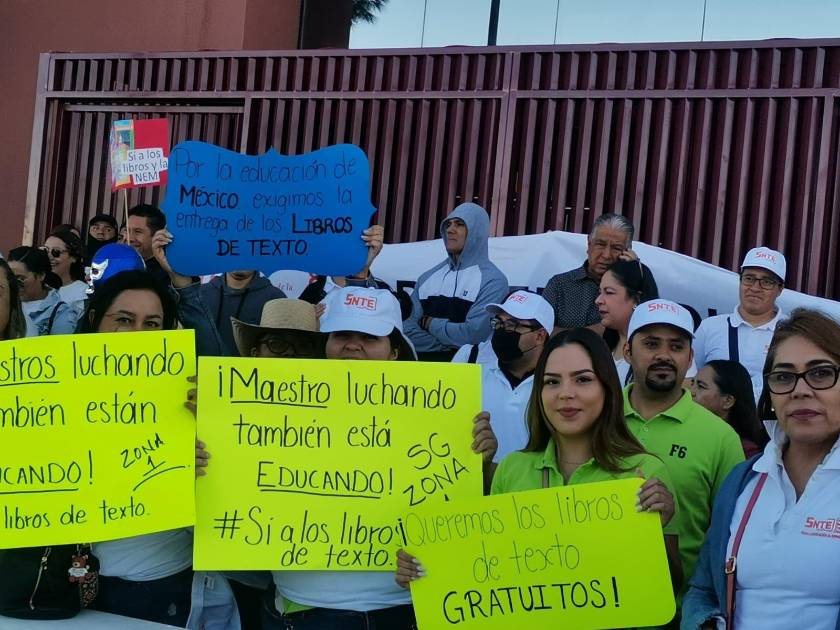 Sí a los
libros y la
NEM
Por la educación de
México exigimos la
entrega de los LIBROS
DE TEXTO.
SNTE
SNTE
SNTE
SNTE
SNTE
stros luchando
mbién están
UCANDO!
ZONA
1
libros de texto.
¡MAESTRO luchando
también está
EDUCANDO!
SG
ZONA
#Si a los libros
de texto.
¡Queremos los libros
de texto
GRATUITOS!
F6
SNTE